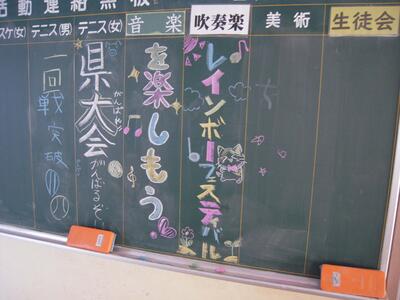 活動連絡黒板
生徒会
美術
吹奏楽
音楽
テニス(女)
テニス(男)
スケ(女)
レインボーフェスティバル
を楽しもう
県大会
がんばれ!!
がんばるぞ
一回戦突破